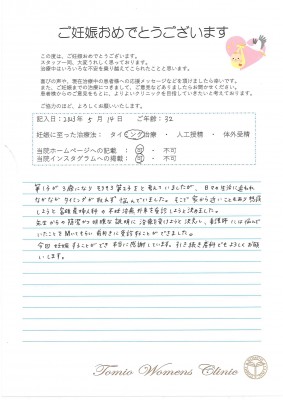 ご妊娠おめでとうございます
この度は、ご妊娠おめでとうございます。
スタッフ一同、大変うれしく思っております。
治療中はいろいろな不安を乗り越えてこられたことと思います。
喜びの声や、現在治療中の患者様への応援メッセージなどを頂けましたら幸いです。
また、ご妊娠までの治療につきまして、ご意見などありましたらお聞かせください。
患者様からのご意見をもとに、よりよいクリニックを目指していきたいと考えております。
ご協力のほど、よろしくお願いいたします。
記入日:2023年 5月 14日 ご年齢:32
妊娠に至った治療法: タイミング治療 ・ 人工授精 ・ 体外受精
当院ホームページへの記載 : 可 ・ 不可
当院インスタグラムへの掲載 : 可 ・ 不可
第1子が3歳になりそろそろ第2子をと考えていましたが、日々の生活に追われ
なかなかタイミングが取れず悩んでいました。そこで家から近いこともあり
しようと 産婦人科の不妊治療外来を受診しようと決めました。
先生からの 説明に治療を受けようと決心し、看護師 には悩んで
いたことを聞いてもらい前向きに受診することができました。
今回妊娠することができ本当に感謝しています。引き続き産科でもよろしくお願
いします。
Tomio Womens Clinic